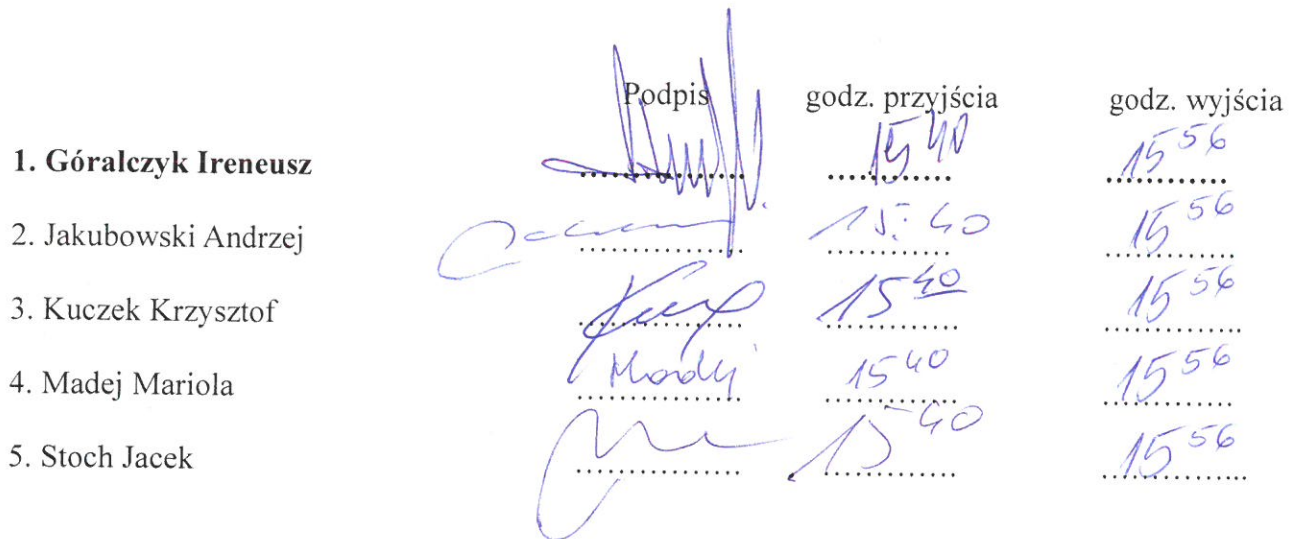 Podpis godz. przyjścia godz. wyjścia
1. Góralczyk Ireneusz 15 40 15 56
2. Jakubowski Andrzej 15:40 15 56
3. Kuczek Krzysztof 15 40 15 56
4. Madej Mariola Madej 15 40 15 56
5. Stoch Jacek 15 40 15 56